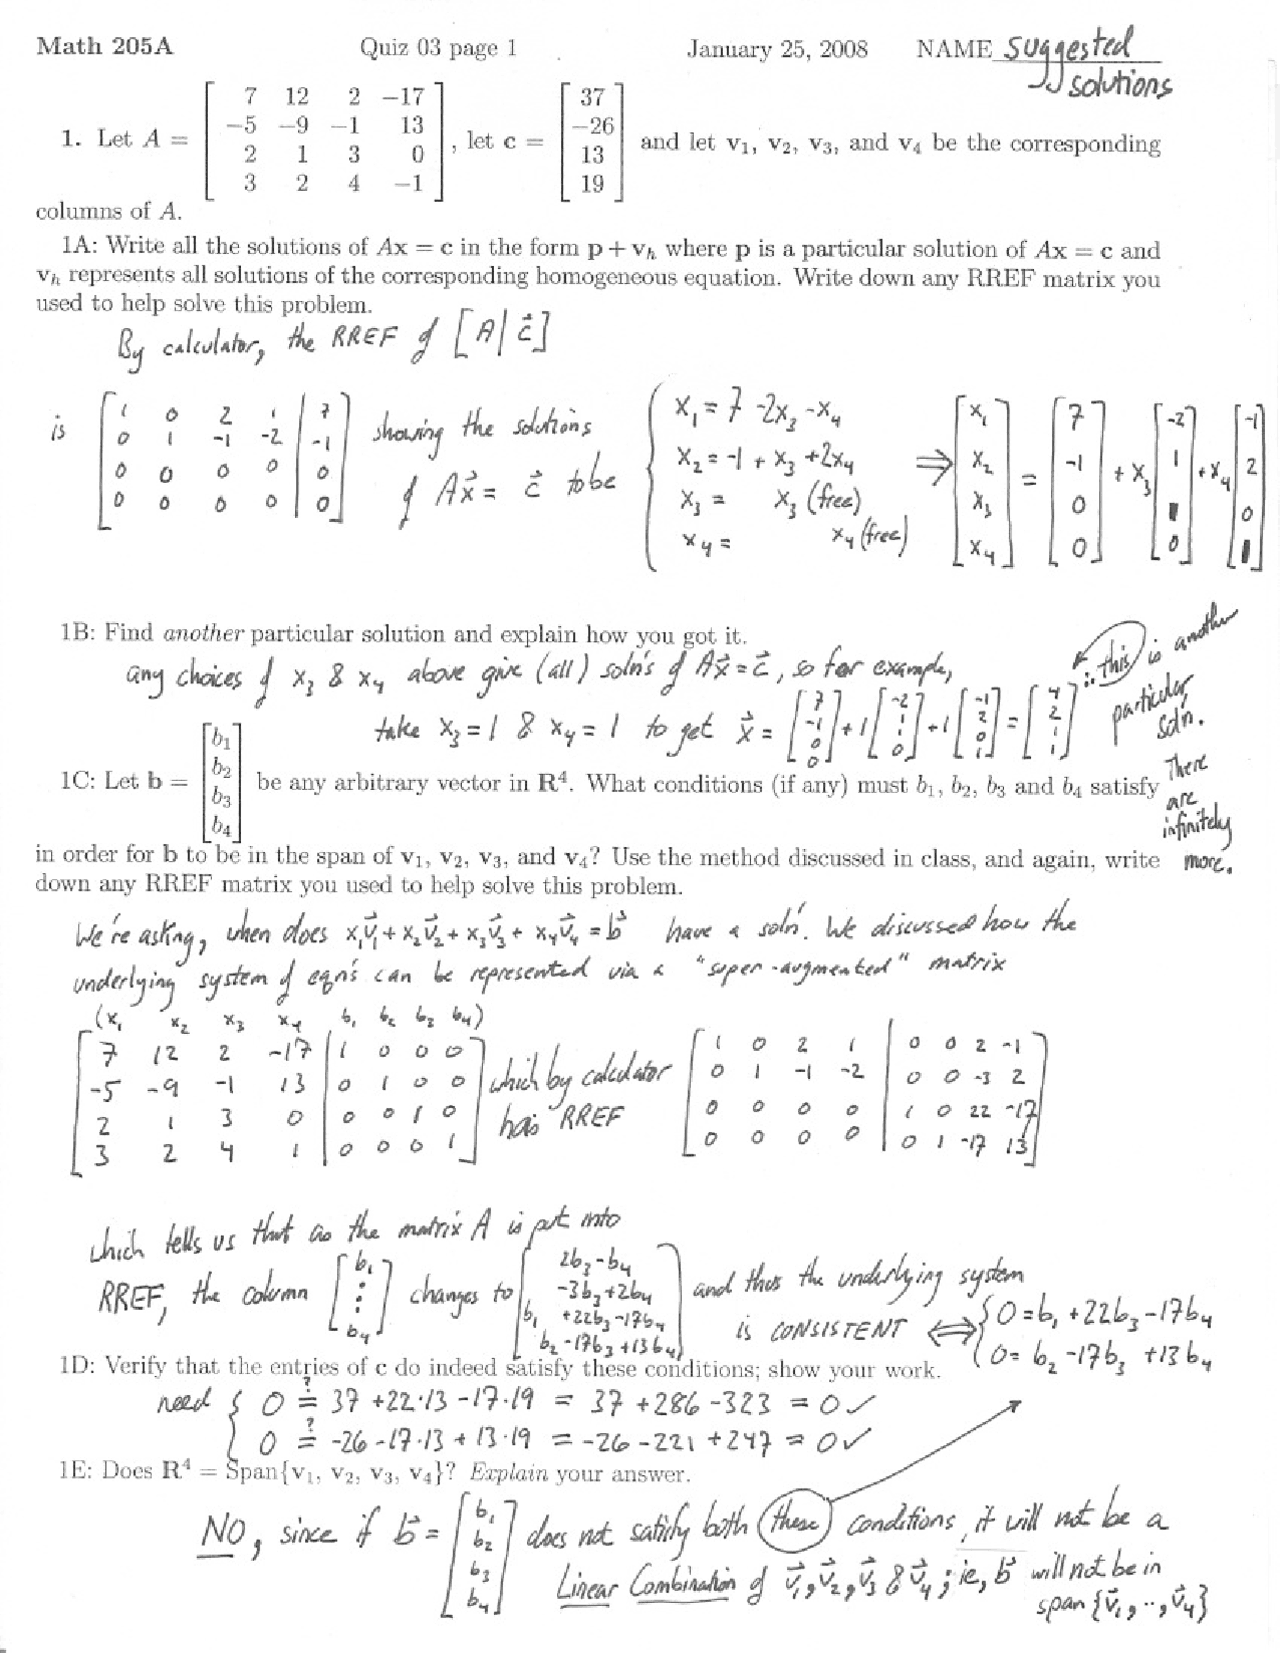 Math 205A Quiz 03 page 1 January 25, 2008 NAME Suggested solutions
1. Let A = [ 7 12 2 −17 ; −5 −9 −1 13 ; 2 1 3 0 ; 3 2 4 −1 ], let c = [ 37 ; −26 ; 13 ; 19 ] and let v₁, v₂, v₃, and v₄ be the corresponding
columns of A.
1A: Write all the solutions of Ax = c in the form p + vₕ where p is a particular solution of Ax = c and
vₕ represents all solutions of the corresponding homogeneous equation. Write down any RREF matrix you
used to help solve this problem.
By calculator, the RREF of [A|c⃗]
is [ 1 0 2 1 | 7 ; 0 1 -1 -2 | -1 ; 0 0 0 0 | 0 ; 0 0 0 0 | 0 ] showing the solutions of Ax⃗ = c⃗ to be { x₁ = 7 -2x₃ -x₄ ; x₂ = -1 + x₃ +2x₄ ; x₃ = x₃ (free) ; x₄ = x₄ (free) ⇒ [ x₁ ; x₂ ; x₃ ; x₄ ] = [ 7 ; -1 ; 0 ; 0 ] + x₃ [ -2 ; 1 ; 1 ; 0 ] + x₄ [ -1 ; 2 ; 0 ; 1 ]
1B: Find another particular solution and explain how you got it.
any choices of x₃ & x₄ above give (all) soln's of Ax⃗ = c⃗, so for example,
take x₃ = 1 & x₄ = 1 to get x⃗ = [ 7 ; -1 ; 0 ; 0 ] + 1 [ -2 ; 1 ; 1 ; 0 ] + 1 [ -1 ; 2 ; 0 ; 1 ] = [ 4 ; 2 ; 1 ; 1 ]
∴ this is another
particular
soln.
There
are
infinitely
more.
1C: Let b = [ b₁ ; b₂ ; b₃ ; b₄ ] be any arbitrary vector in R⁴. What conditions (if any) must b₁, b₂, b₃ and b₄ satisfy
in order for b to be in the span of v₁, v₂, v₃, and v₄? Use the method discussed in class, and again, write
down any RREF matrix you used to help solve this problem.
We're asking, when does x₁v⃗₁ + x₂v⃗₂ + x₃v⃗₃ + x₄v⃗₄ = b⃗ have a soln. We discussed how the
underlying system of eqn's can be represented via a "super-augmented" matrix
(x₁ x₂ x₃ x₄ b₁ b₂ b₃ b₄)
[ 7 12 2 -17 | 1 0 0 0 ; -5 -9 -1 13 | 0 1 0 0 ; 2 1 3 0 | 0 0 1 0 ; 3 2 4 1 | 0 0 0 1 ] which by calculator has RREF [ 1 0 2 1 | 0 0 2 -1 ; 0 1 -1 -2 | 0 0 -3 2 ; 0 0 0 0 | 1 0 22 -17 ; 0 0 0 0 | 0 1 -17 13 ]
which tells us that as the matrix A is put into
RREF, the column [ b₁ ⋮ b₄ ] changes to [ 2b₃-b₄ ; -3b₃+2b₄ ; b₁ +22b₃-17b₄ ; b₂ -17b₃+13b₄ ] and thus the underlying system
is CONSISTENT ⟺ { 0 = b₁ +22b₃ -17b₄ ; 0 = b₂ -17b₃ +13b₄
1D: Verify that the entries of c do indeed satisfy these conditions; show your work.
need { 0 ≟ 37 +22·13 -17·19 = 37 +286 -323 = 0 ✓
0 ≟ -26 -17·13 + 13·19 = -26 -221 +247 = 0 ✓
1E: Does R⁴ = Span{v₁, v₂, v₃, v₄}? Explain your answer.
NO, since if b⃗ = [ b₁ ; b₂ ; b₃ ; b₄ ] does not satisfy both these conditions, it will not be a
Linear Combination of v⃗₁, v⃗₂, v⃗₃ & v⃗₄; ie, b⃗ will not be in
span {v⃗₁, .., v⃗₄}